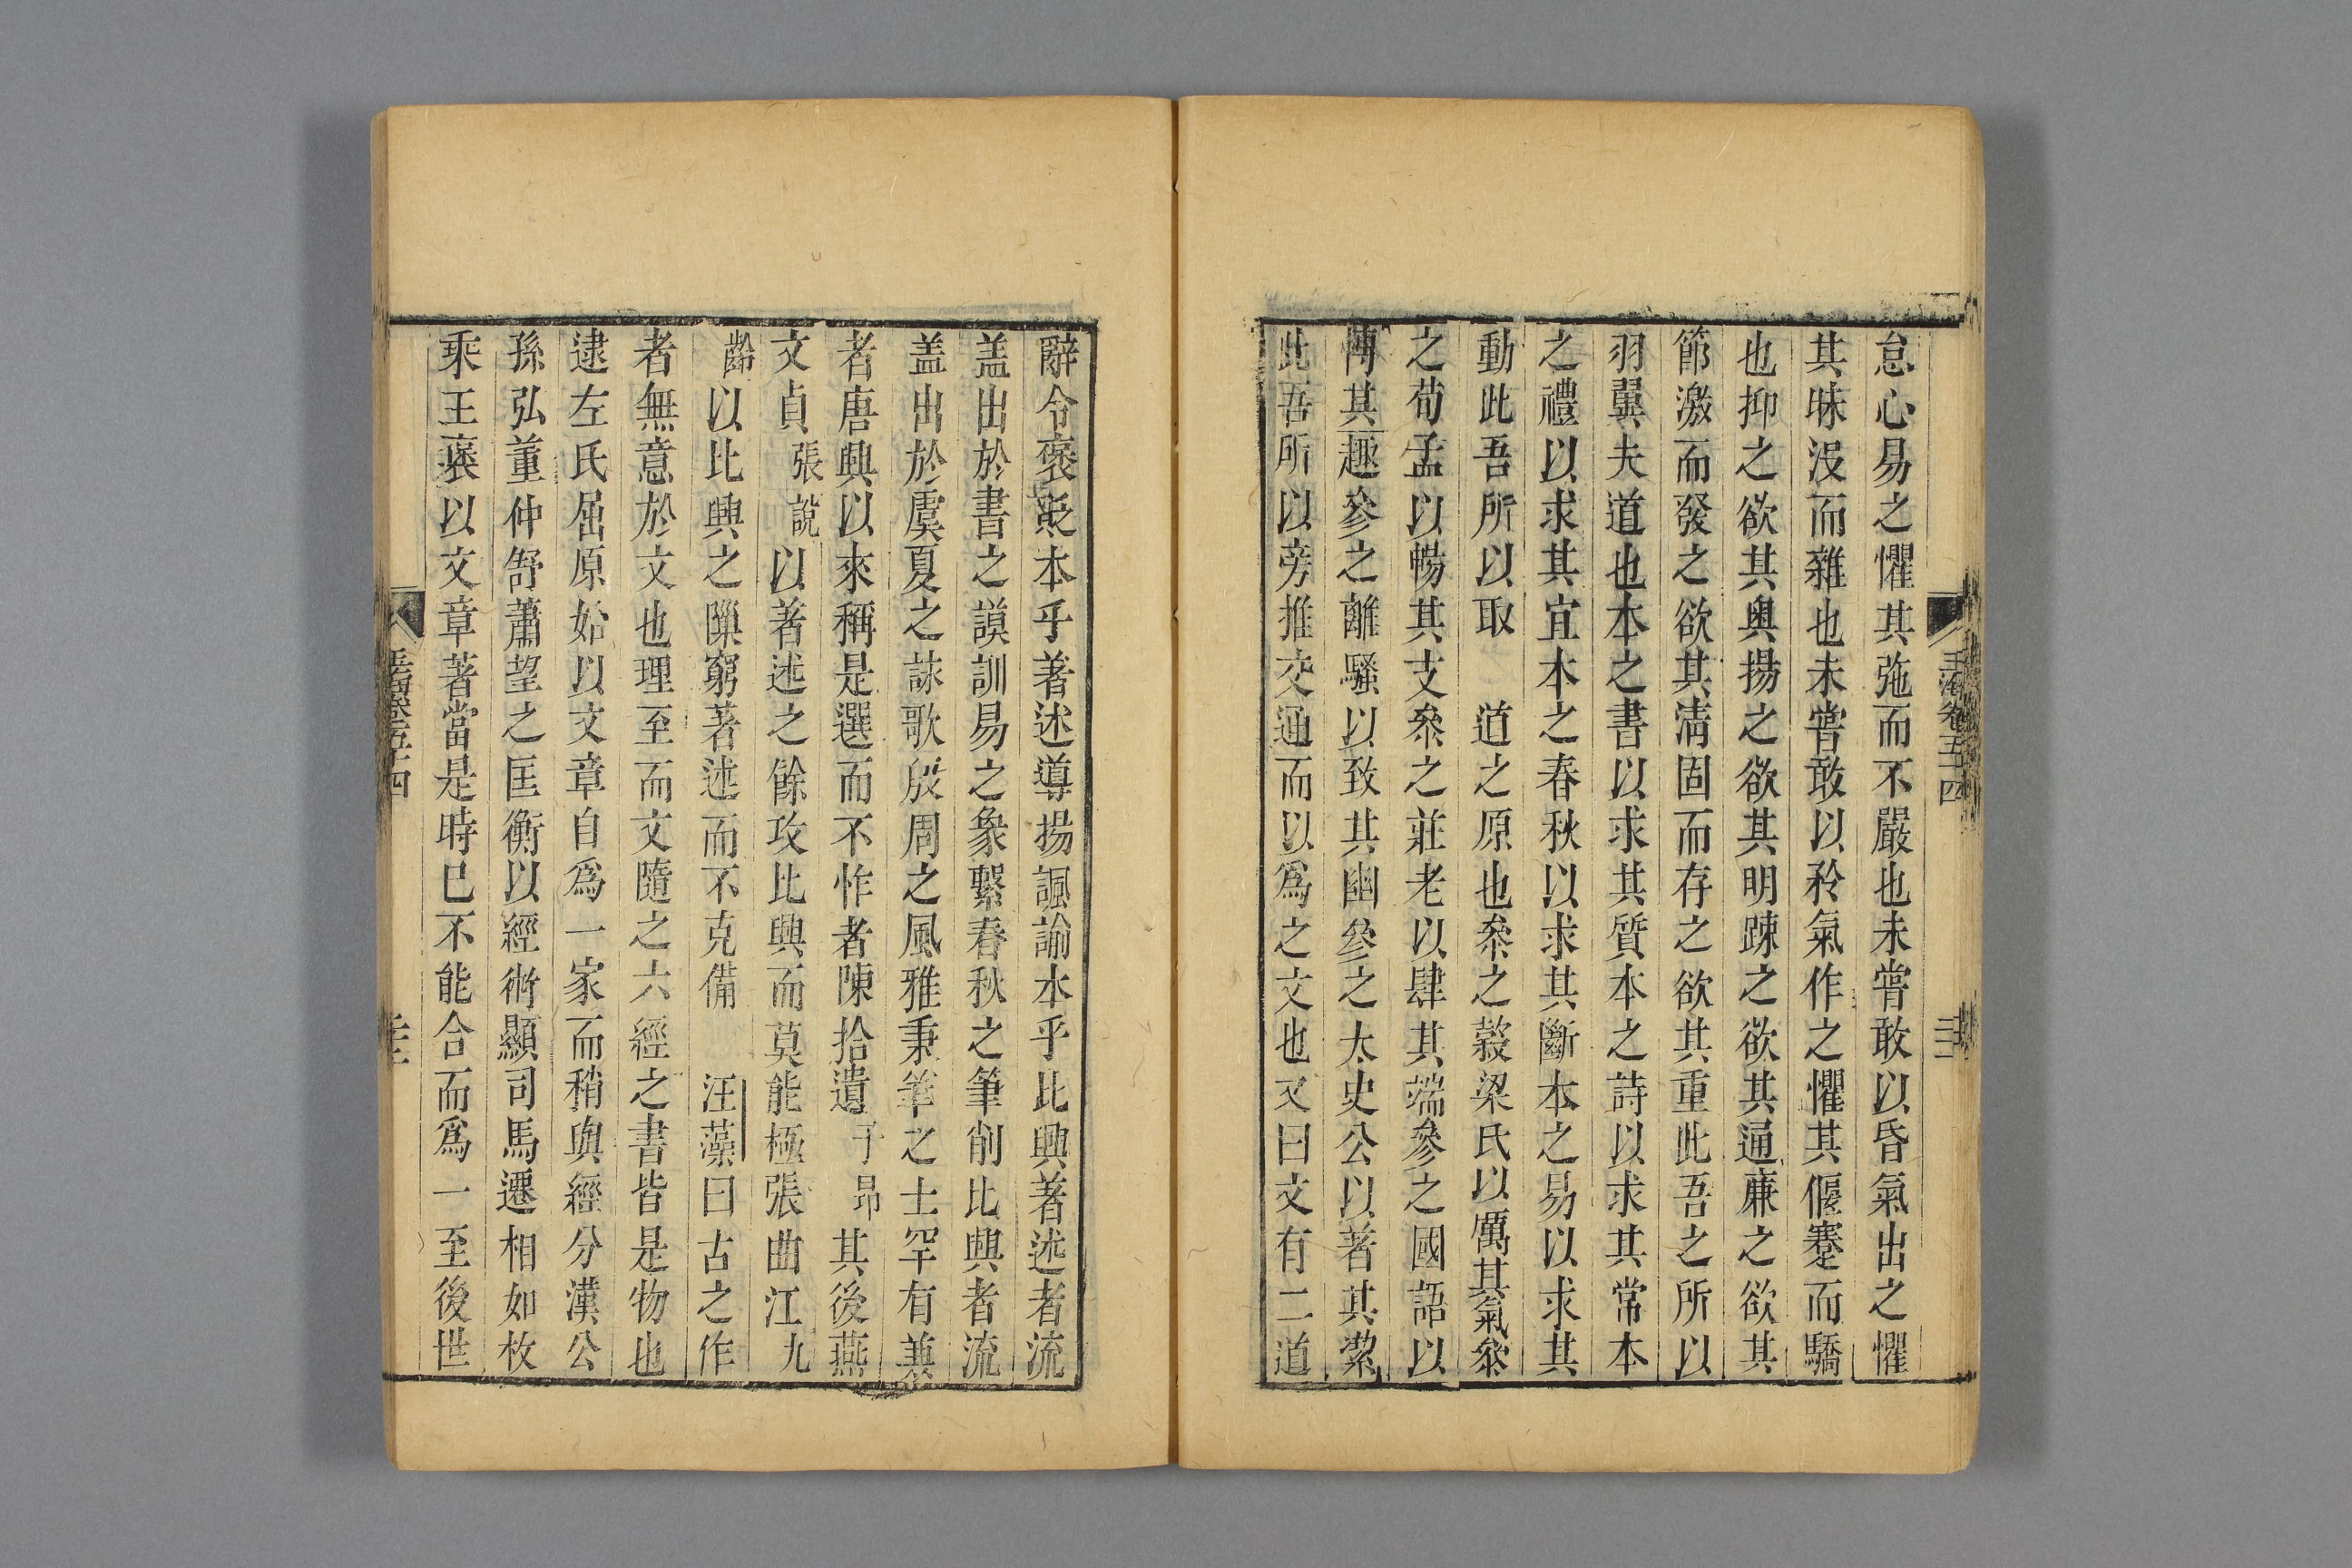 怠心易之懼其弛而不嚴也未嘗敢以昏氣出之懼
其昧沒而雜也未嘗敢以矜氣作之懼其偃蹇而驕
也抑之欲其奥揚之欲其明踈之欲其通廉之欲其
節激而發之欲其淸固而存之欲其重此吾之所以
羽翼夫道也本之書以求其質本之詩以求其常本
之禮以求其宜本之春秋以求其斷本之易以求其
動此吾所以取 道之原也叅之榖梁氏以厲其氣叅
之荀孟以暢其支叅之莊老以肆其端參之國語以
博其趣參之離騷以致其幽參之太史公以著其潔
此吾所以旁推交通而以爲之文也又曰文有二道
辭令褒貶本乎著述導揚諷諭本乎比興著述者流
盖出於書之謨訓易之象繫春秋之筆削比興者流
盖出於虞夏之詠歌殷周之風雅秉筆之士罕有兼
者唐興以來稱是選而不怍者陳拾遺子昻其後燕
文貞張說以著述之餘攻比興而莫能極張曲江九
齡以比興之隟窮著述而不克備 汪藻曰古之作
者無意於文也理至而文隨之六經之書皆是物也
逮左氏屈原始以文章自爲一家而稍與經分漢公
孫弘董仲舒蕭望之匡衡以經術顯司馬遷相如枚
乘王褒以文章著當是時已不能合而爲一至後世